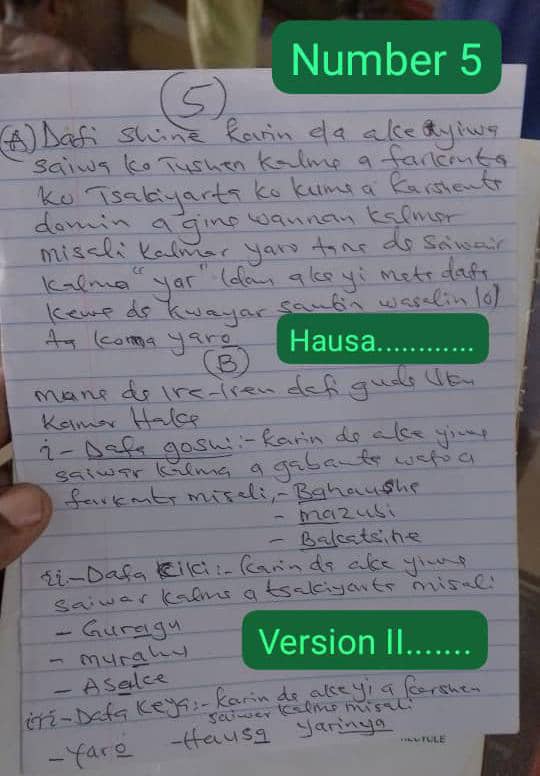 Number 5
(5)
(A) Dafi shine karin da ake yiwa
saiwa ko Tushen kalma a farkonta
ko Tsakiyarta ko kuma a karshenta
domin a gina wannan kalmar
misali kalmar yaro tana da saiwar
kalma "yar" Idan aka yi mata dafi
kewa da kwayar sautin wasalin /o/
ta koma yaro
Hausa............
(B)
mana da ire-iren dafi guda Uku
Kamar Haka
i- Dafa goshi:- karin da ake yiwa
saiwar kalma a gabanta wato a
farkonta misali,- Bahaushe
- mazubi
- Bakatsine
ii- Dafa kiki:- karin da ake yiwa
saiwar kalma a tsakiyanta misali
- Guragu
Version II.......
- murahu
- Asake
iii- Dafa keya:- karin da ake yi a karshen
saiwar kalma misali
- Yaro - Hausa yarinya